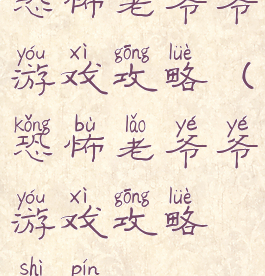 恐怖老爷爷
yóu xì gōng lüè
游戏攻略（
kǒng bù lǎo yé yé
恐怖老爷爷
yóu xì gōng lüè
游戏攻略
shì pín